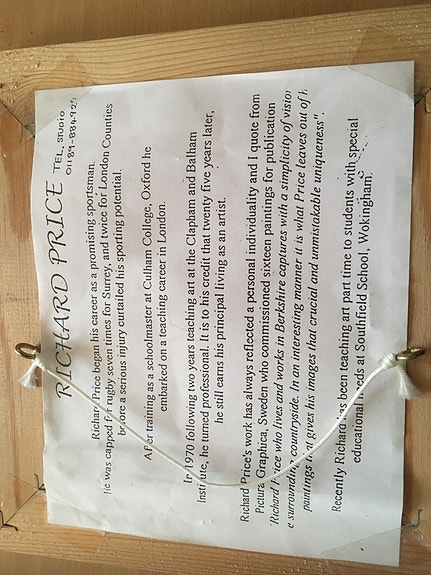 RICHARD PRICE TEL. STUDIO
Richard Price began his career as a promising sportsman.
He was capped for rugby seven times for Surrey, and twice for London Counties
before a serious injury curtailed his sporting potential.
After training as a schoolmaster at Culham College, Oxford he
embarked on a teaching career in London.
In 1970 following two years teaching art at the Clapham and Balham
Institute, he turned professional. It is to his credit that twenty five years later,
he still earns his principal living as an artist.
Richard Price's work has always reflected a personal individuality and I quote from
Pictura Graphica, Sweden who commissioned sixteen paintings for publication
'Richard Price who lives and works in Berkshire captures with a simplicity of vision
e surrounding countryside. In an interesting manner it is what Price leaves out of h
paintings that gives his images that crucial and unmistakable uniqueness".
Recently Richard has been teaching art part time to students with special
educational needs at Southfield School, Wokingham.